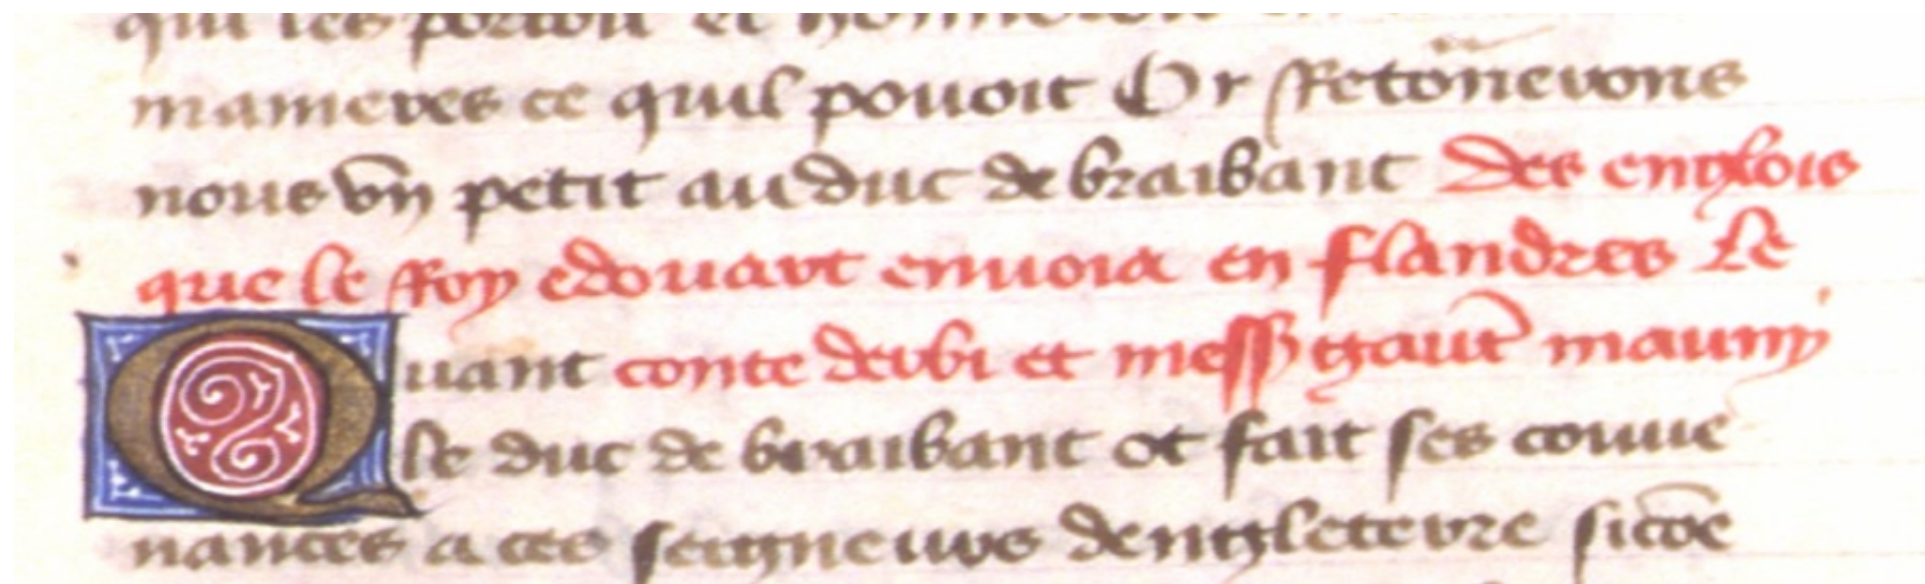 qui les portoit et honnoroit en
manieres ce quil pouoit Or Retoñerons
nous vn petit au duc de braibant Des englois
que le Roy edouart enuoia en flandres Le
Quant conte derbi et mess gaut̃ mauny
le duc de braibant ot fait ses conue
nances a ces seigneurs dengleterre sicõe